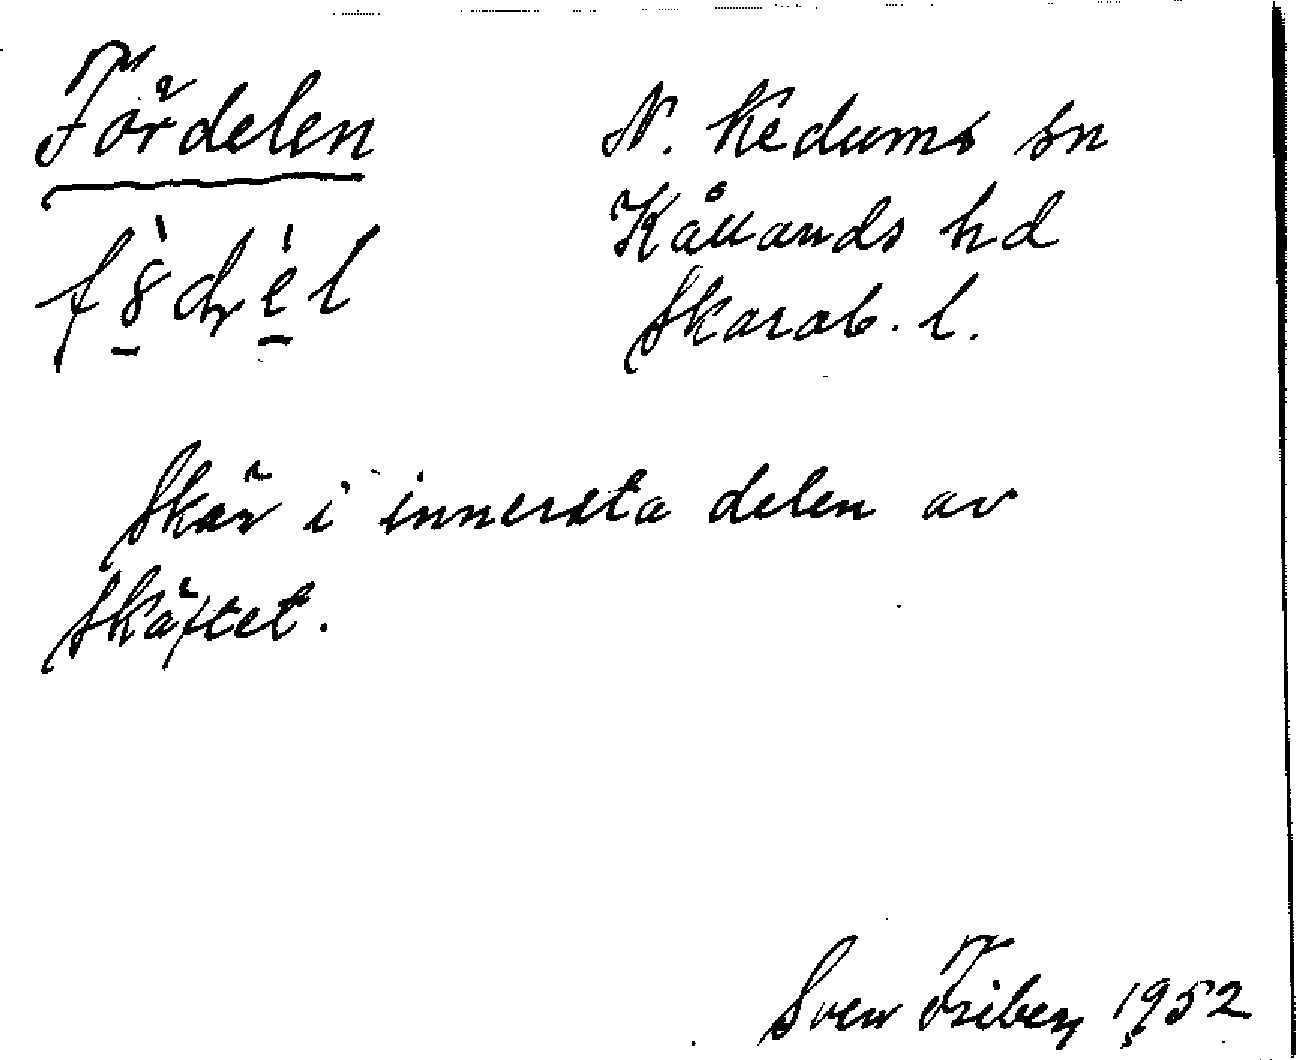 Fördelen
N. Kedums sn
Kållands hd
Skarab. l.
Skär i innersta delen av
skäftet.
Sven Friberg 1952